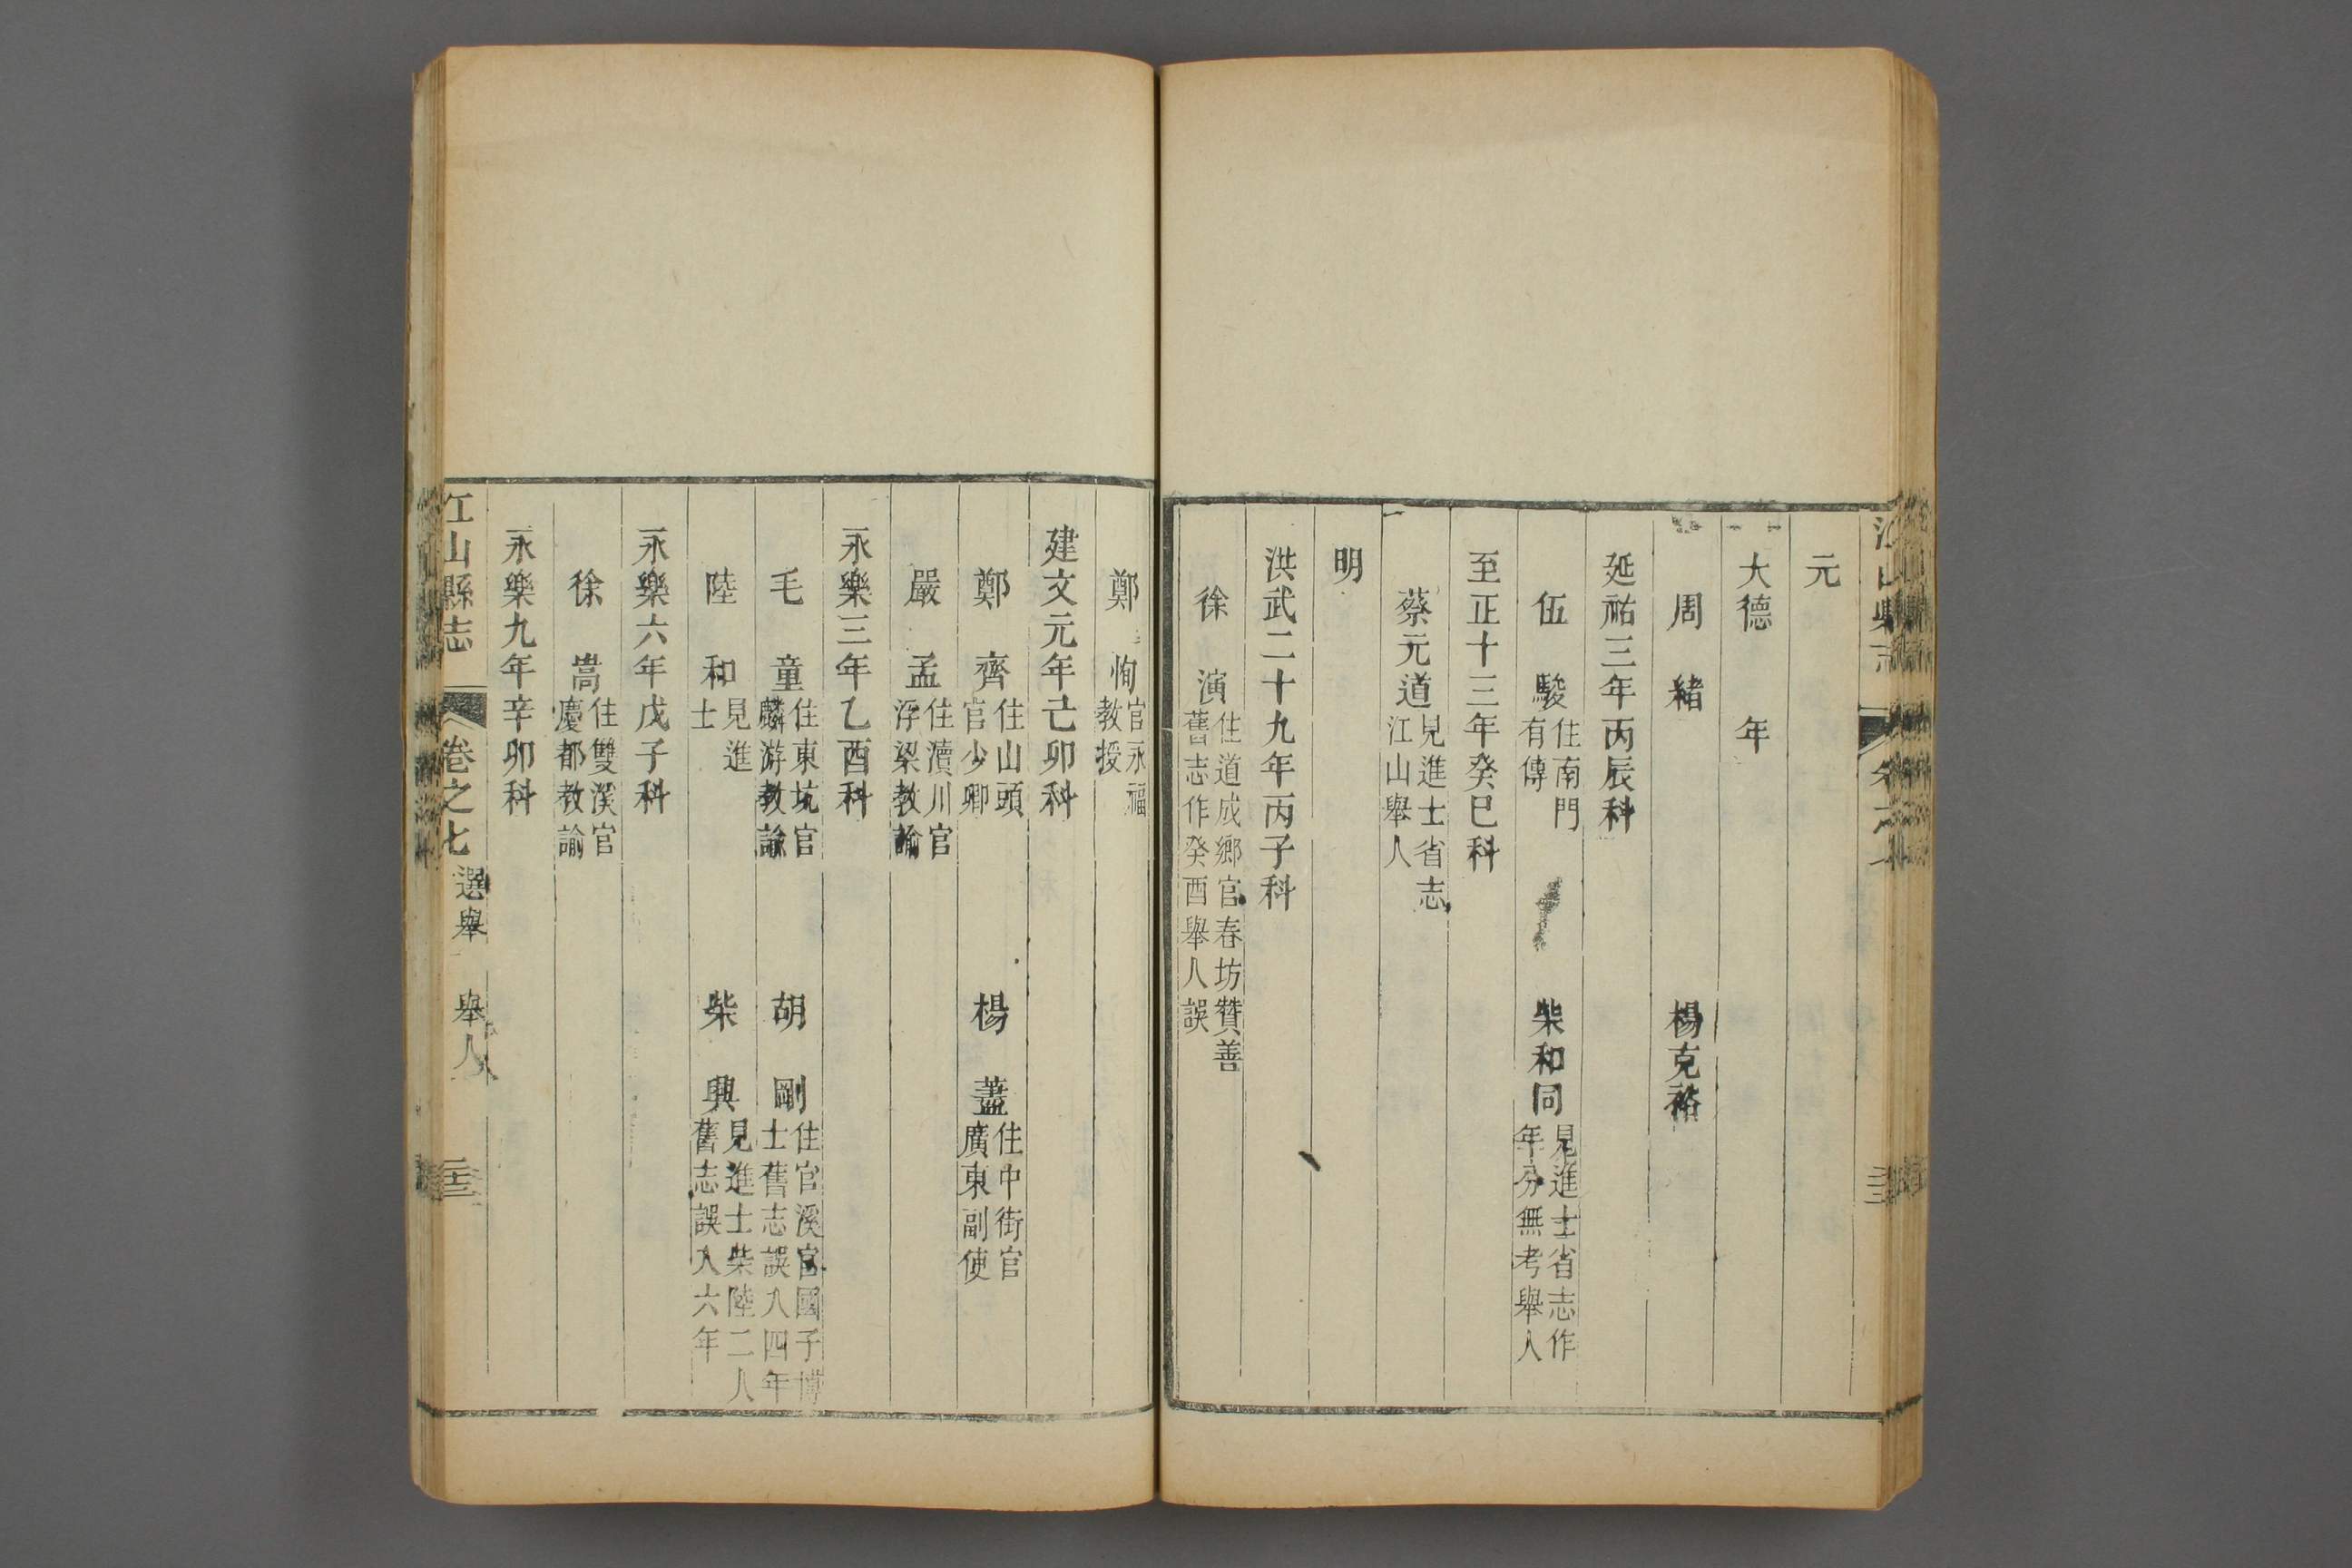 元
大德　年
周緒　楊克裕
延祐三年丙辰科
伍駿住南門有傳　柴和同見進士省志作年分無考舉人
至正十三年癸巳科
蔡元道見進士省志江山舉人
明
洪武二十九年丙子科
徐演住道成鄉官春坊贊善舊志作癸酉舉人誤
鄭恂官永福教授
建文元年己卯科
鄭齊住山頭官少卿　楊藎住中街官廣東副使
嚴孟住瀆川官浮梁教諭
永樂三年乙酉科
毛童住東坑官麟游教諭　胡剛住官溪官國子博士舊志誤入四年
陸和見進士　柴興見進士柴陸二人舊志誤入六年
永樂六年戊子科
徐嵩住雙溪官慶都教諭
永樂九年辛卯科
江山縣志　卷之七　選舉　舉人　二十三